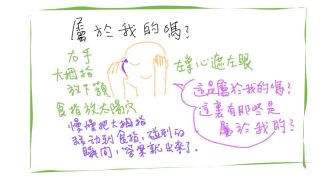 屬於我的嗎?
右手
大拇指
放下顎
食指放太陽穴
慢慢把大拇指
移動到食指,碰到的
瞬間,答案就出來了.
左掌心遮左眼
這是屬於我的嗎?
這裏有那些是
屬於我的?